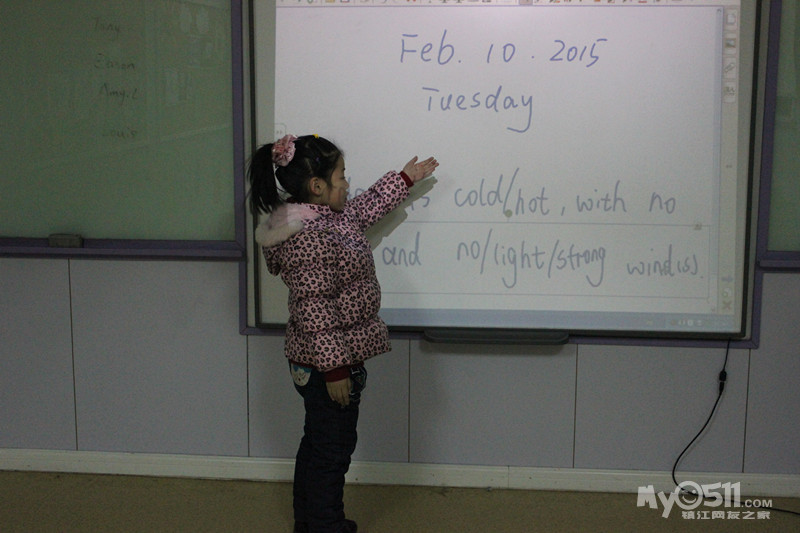 Tony
Feb. 10. 2015
Tuesday
is cold/hot, with no
and no/light/strong wind(s).
MY0511.COM
镇江网友之家